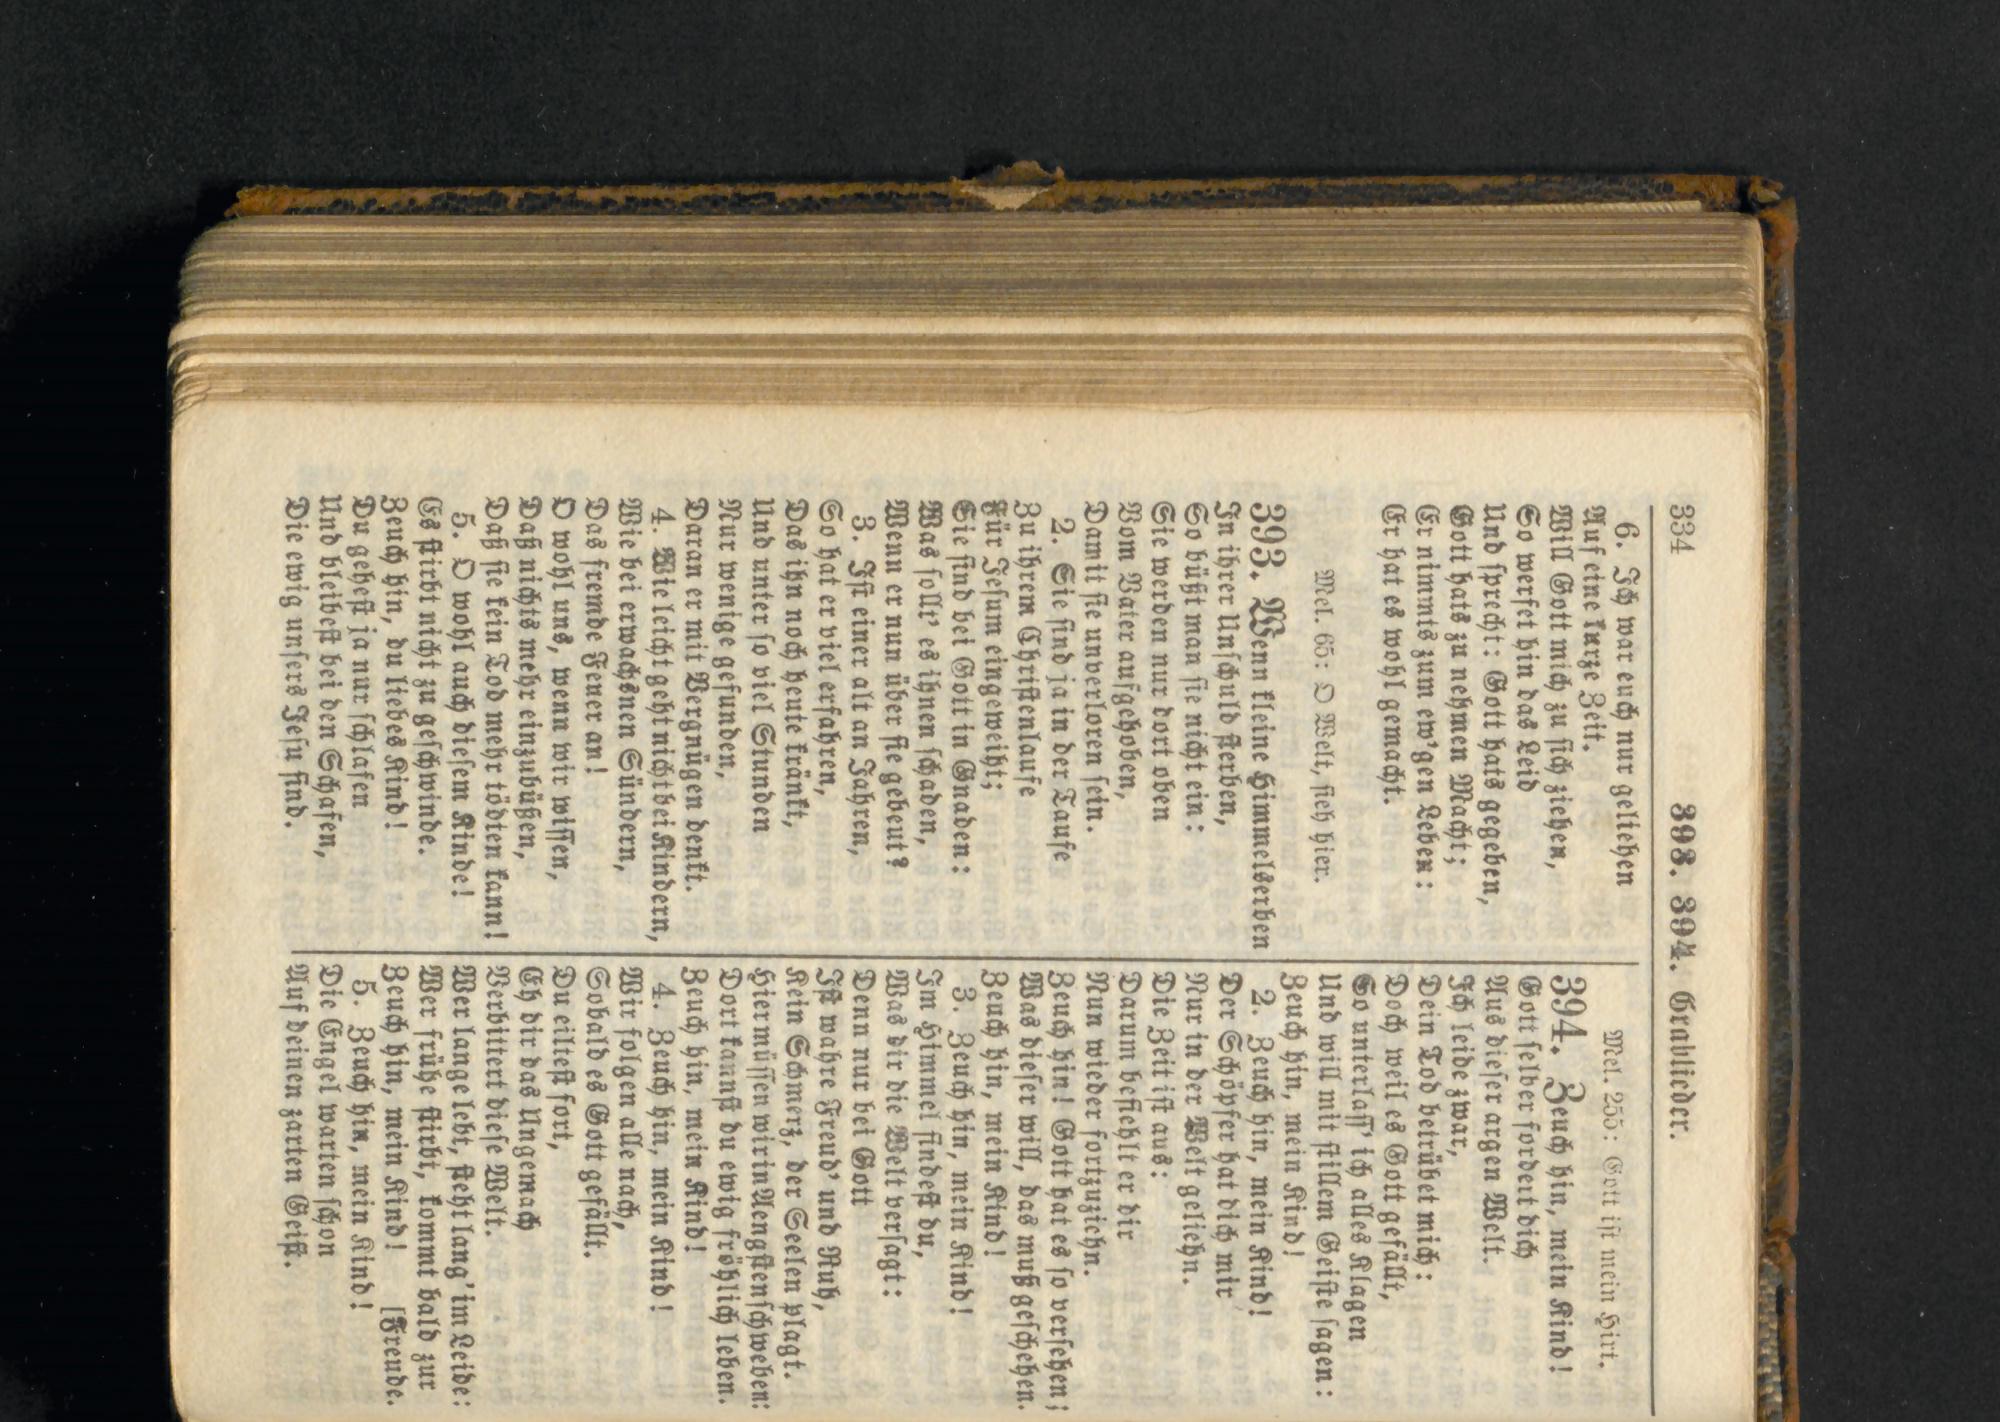 334
393. 394. Grablieder.
6. Ich war euch nur geliehen
Auf eine kurze Zeit.
Will Gott mich zu sich ziehen,
So werfet hin das Leid
Und sprecht: Gott hats gegeben,
Gott hats zu nehmen Macht;
Er nimmts zum ew'gen Leben:
Er hat es wohl gemacht.
Mel. 65: O Welt, sieh hier.
393. Wenn kleine Himmelserben
In ihrer Unschuld sterben,
So büßt man sie nicht ein:
Sie werden nur dort oben
Vom Vater aufgehoben,
Damit sie unverloren sein.
2. Sie sind ja in der Taufe
Zu ihrem Christenlaufe
Für Jesum eingeweiht;
Sie sind bei Gott in Gnaden:
Was sollt' es ihnen schaden,
Wenn er nun über sie gebeut?
3. Ist einer alt an Jahren,
So hat er viel erfahren,
Das ihn noch heute kränkt,
Und unter so viel Stunden
Nur wenige gefunden,
Daran er mit Vergnügen denkt.
4. Wie leicht geht nicht bei Kindern,
Wie bei erwachsnen Sündern,
Das fremde Feuer an!
O wohl uns, wenn wir wissen,
Daß nichts mehr einzubüßen,
Daß sie kein Tod mehr tödten kann!
5. O wohl auch diesem Kinde!
Es stirbt nicht zu geschwinde.
Zeuch hin, du liebes Kind!
Du gehest ja nur schlafen
Und bleibest bei den Schafen,
Die ewig unsers Jesu sind.
Mel. 255: Gott ist mein Hirt.
394. Zeuch hin, mein Kind!
Gott selber fordert dich
Aus dieser argen Welt.
Ich leide zwar,
Dein Tod betrübet mich:
Doch weil es Gott gefällt,
So unterlass' ich alles Klagen
Und will mit stillem Geiste sagen:
Zeuch hin, mein Kind!
2. Zeuch hin, mein Kind!
Der Schöpfer hat dich mir
Nur in der Welt geliehn.
Die Zeit ist aus:
Darum befiehlt er dir
Nun wieder fortzuziehn.
Zeuch hin! Gott hat es so versehen;
Was dieser will, das muß geschehen.
Zeuch hin, mein Kind!
3. Zeuch hin, mein Kind!
Im Himmel findest du,
Was dir die Welt versagt:
Denn nur bei Gott
Ist wahre Freud' und Ruh,
Kein Schmerz, der Seelen plagt.
Hier müssen wir in Aengsten schweben:
Dort kannst du ewig fröhlich leben.
Zeuch hin, mein Kind!
4. Zeuch hin, mein Kind!
Wir folgen alle nach,
Sobald es Gott gefällt.
Du eiltest fort,
Eh dir das Ungemach
Verbittert diese Welt.
Wer lange lebt, steht lang' im Leide:
Wer frühe stirbt, kommt bald zur
Zeuch hin, mein Kind! [Freude.
5. Zeuch hin, mein Kind!
Die Engel warten schon
Auf deinen zarten Geist.